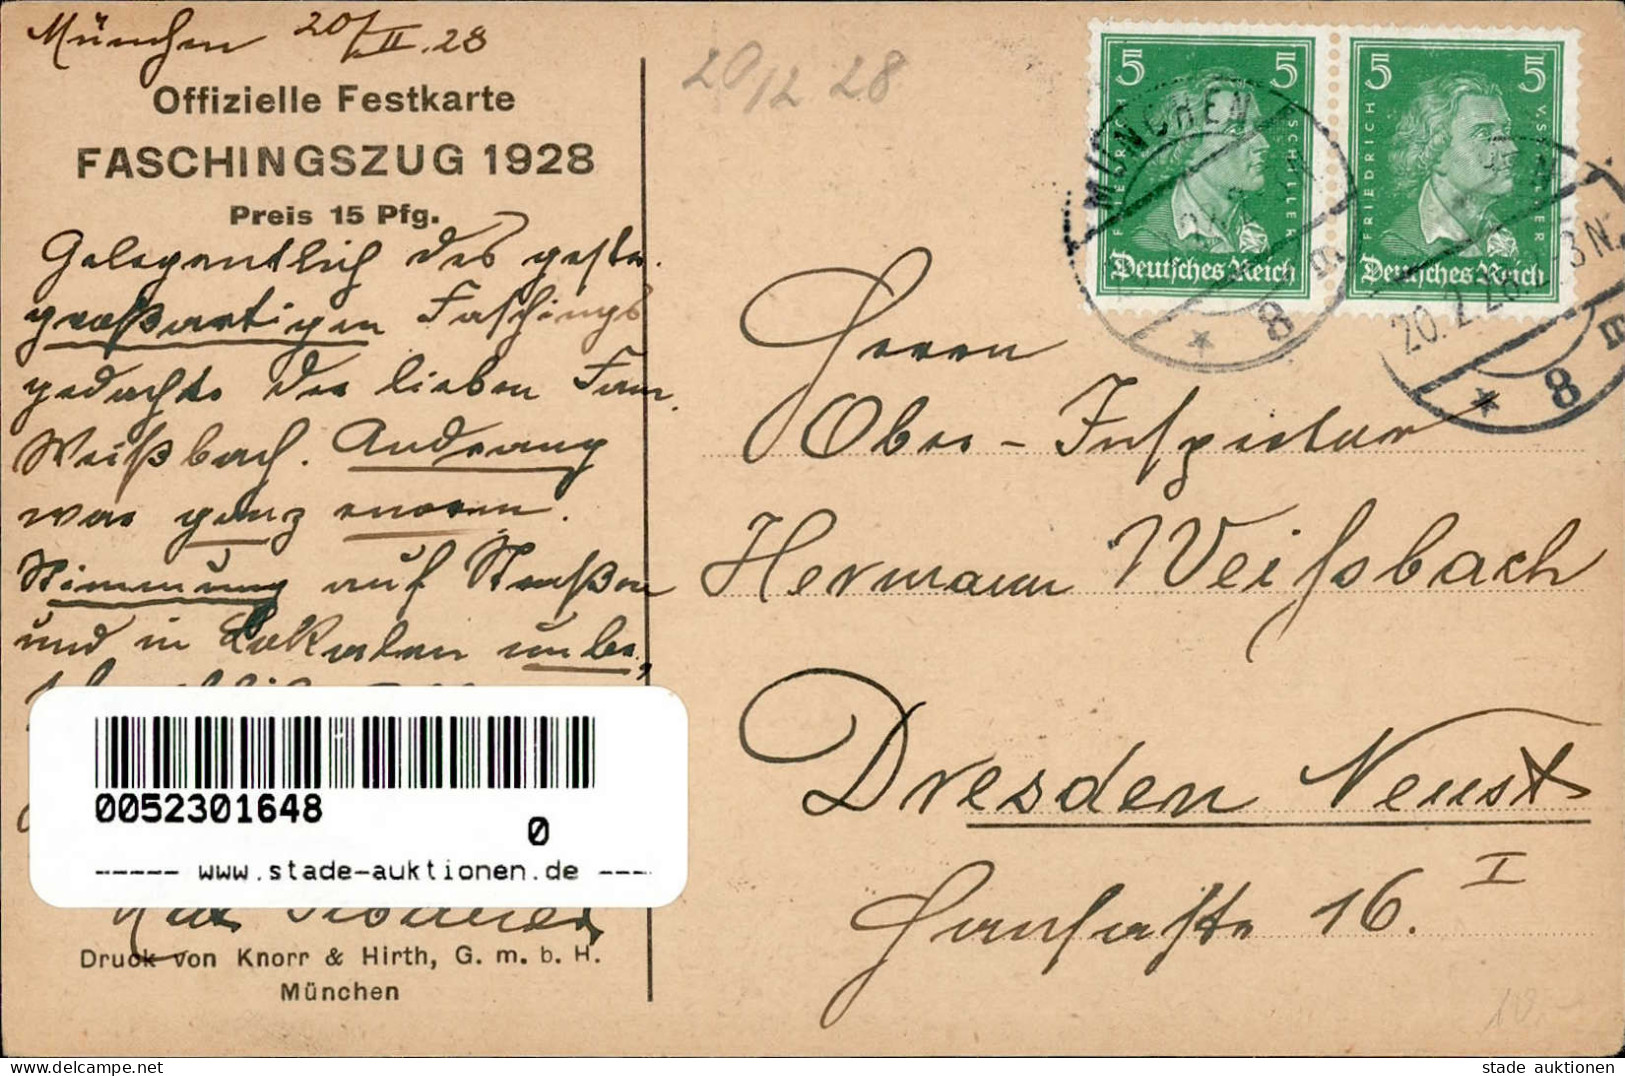 München 20/II.28
Offizielle Festkarte
FASCHINGSZUG 1928
Preis 15 Pfg.
Gelegentlich des gestr.
großartigen Faschings
gedachte der lieben Fam.
Weißbach. Andrang
war ganz enorm.
Stimmung auf Straßen
und in Lokalen unbe-
0052301648
0
----- www.stade-auktionen.de ----
Druck von Knorr & Hirth, G. m. b. H.
München
20/2 28
5 5
FRIEDRICH V. SCHILLER
Deutsches Reich
5 5
FRIEDRICH V. SCHILLER
Deutsches Reich
MÜNCHEN
* 8 B
20.2.28
3 N.
* 8 B
Herrn
Ober-Inspektor
Hermann Weißbach
Dresden Neust
16. I
10.-
stade auktionen